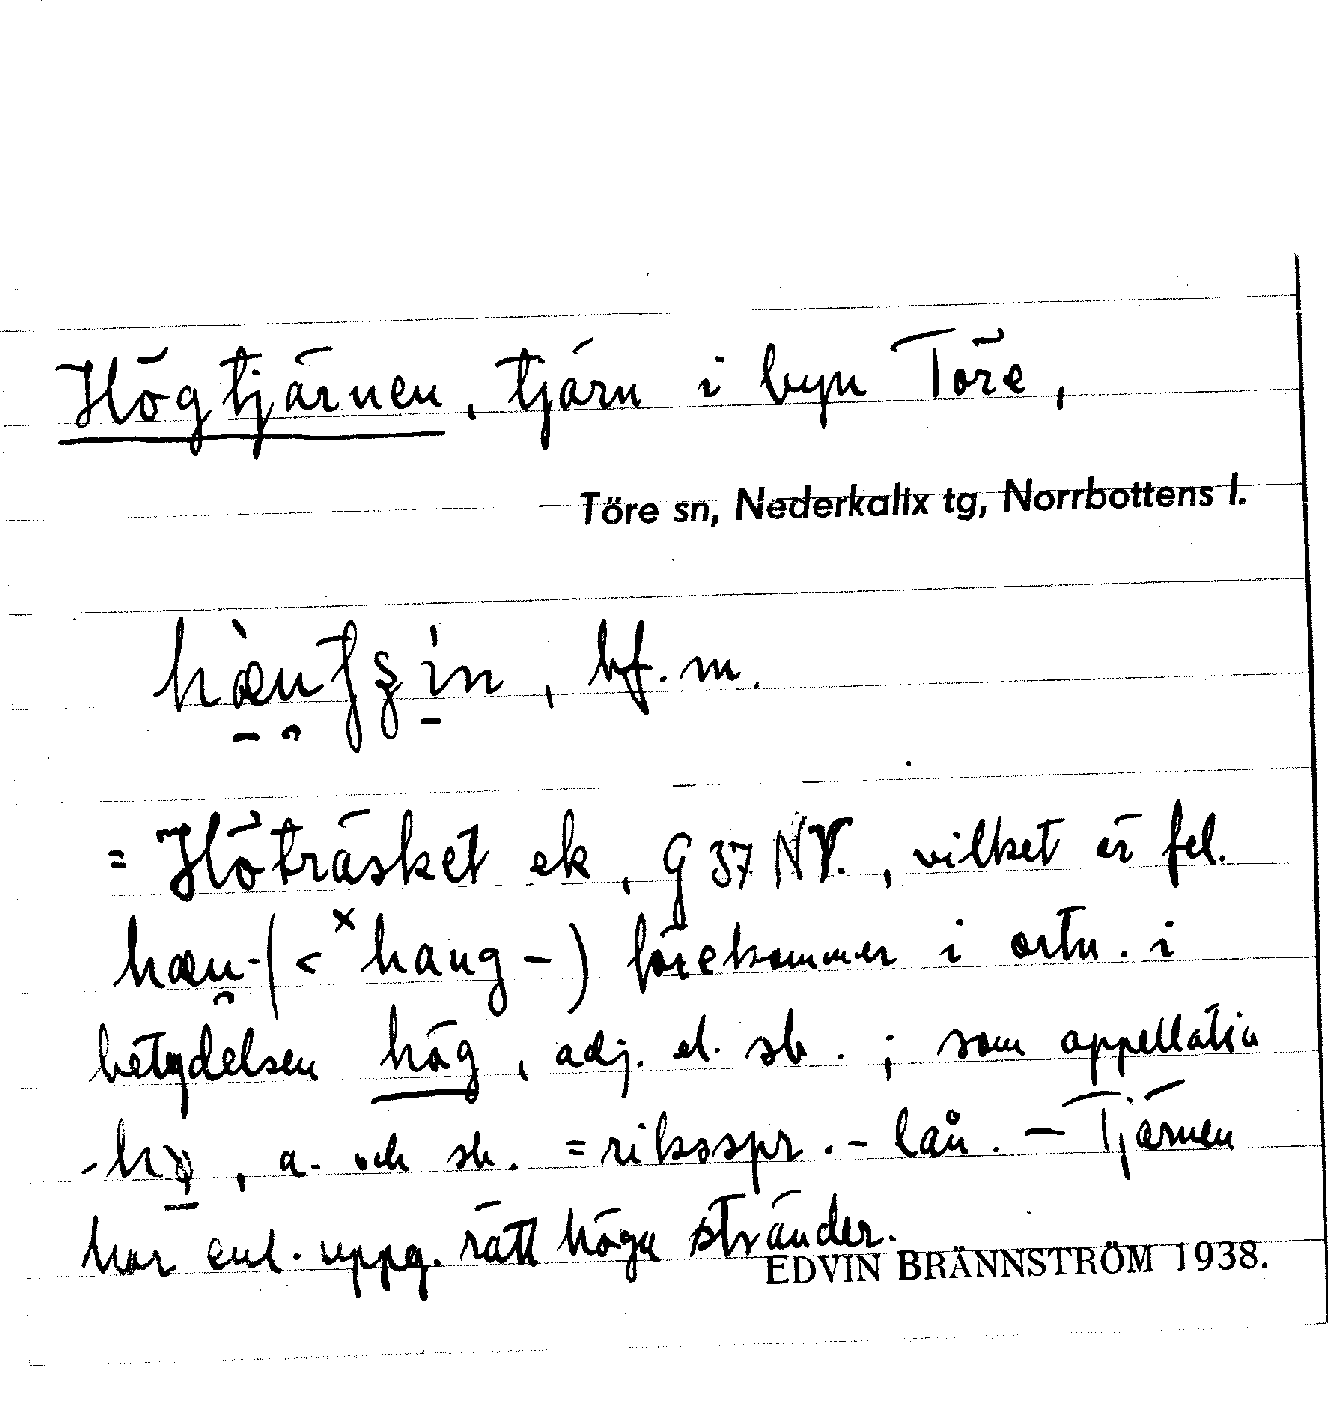 Högtjärnen, tjärn i byn Töre,
Töre sn, Nederkalix tg, Norrbottens l.
, bf. m.
= Höträsket ek, G 37 NV., vilket är fel.
hæu̯-(< ˣhaug-) förekommer i ortn. i
betydelsen hög, adj. el. sb.; som appellativ
, a. och sb. = riksspr. - lån. - Tjärnen
har enl. uppg. rätt höga stränder.
EDVIN BRÄNNSTRÖM 1938.